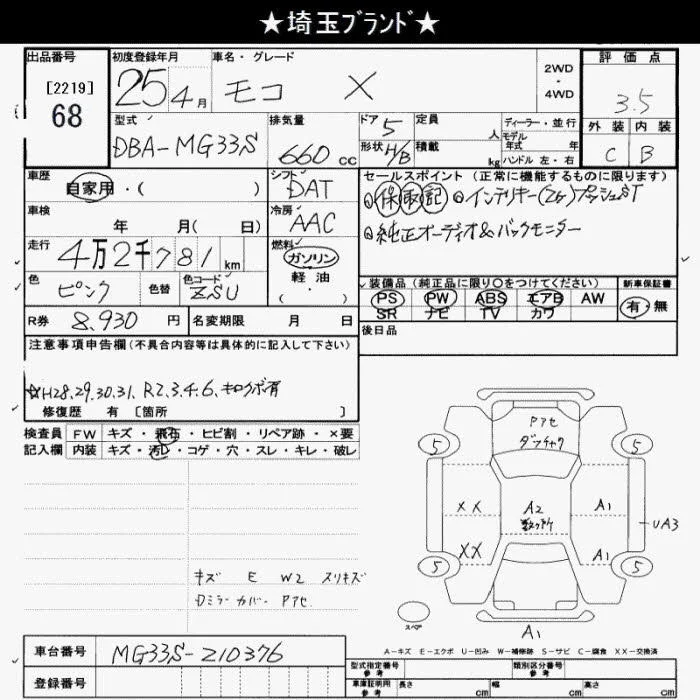 ★埼玉ブランド★
出品番号
[2219]
68
初度登録年月
25年4月
車名・グレード
モコ X
2WD
・
4WD
評価点
3.5
外装 内装
C B
型式
DBA-MG33S
排気量
660 cc
ドア 5
形状 H/B
定員 人
積載 kg
ディーラー・並行
モデル
年式 年
ハンドル 左・右
車歴
自家用・( )
シフト
DAT
セールスポイント (正常に機能するものに限ります)
保 取 記 インテリキー(2ケ)プッシュST
純正オーディオ&バックモニター
車検
年 月( 日)
冷房
AAC
走行
4万2千781 km
燃料
ガソリン
・
軽油
( ・ )
色
ピンク
色替
色コード
ZSU
装備品 (純正品に限り○をつけてください)
PS PW ABS エアB AW
SR ナビ TV カワ
新車保証書
有・無
R券 8,930 円
名変期限 月 日
後日品
注意事項申告欄(不具合内容等は具体的に記入して下さい)
☆H28.29.30.31. R2.3.4.6.キロクボ有
修復歴 有 [箇所 ]
検査員
記入欄
FW キズ・飛石・ヒビ割・リペア跡・×要
内装 キズ・汚レ・コゲ・穴・スレ・キレ・破レ
キズ E W2 スリキズ
Dミラーカバー. Pアセ.
Pアセ
5 5
XX A2 A1
UA3
XX A1
5 5
スペア
A1
A-キズ E-エクボ U-凹み W-補修跡 S-サビ C-腐食 XX-交換済
車台番号
MG33S-210376
登録番号
型式指定番号
参考
類別区分番号
参考
車庫証明用
参考
長さ cm
幅 cm
高さ cm